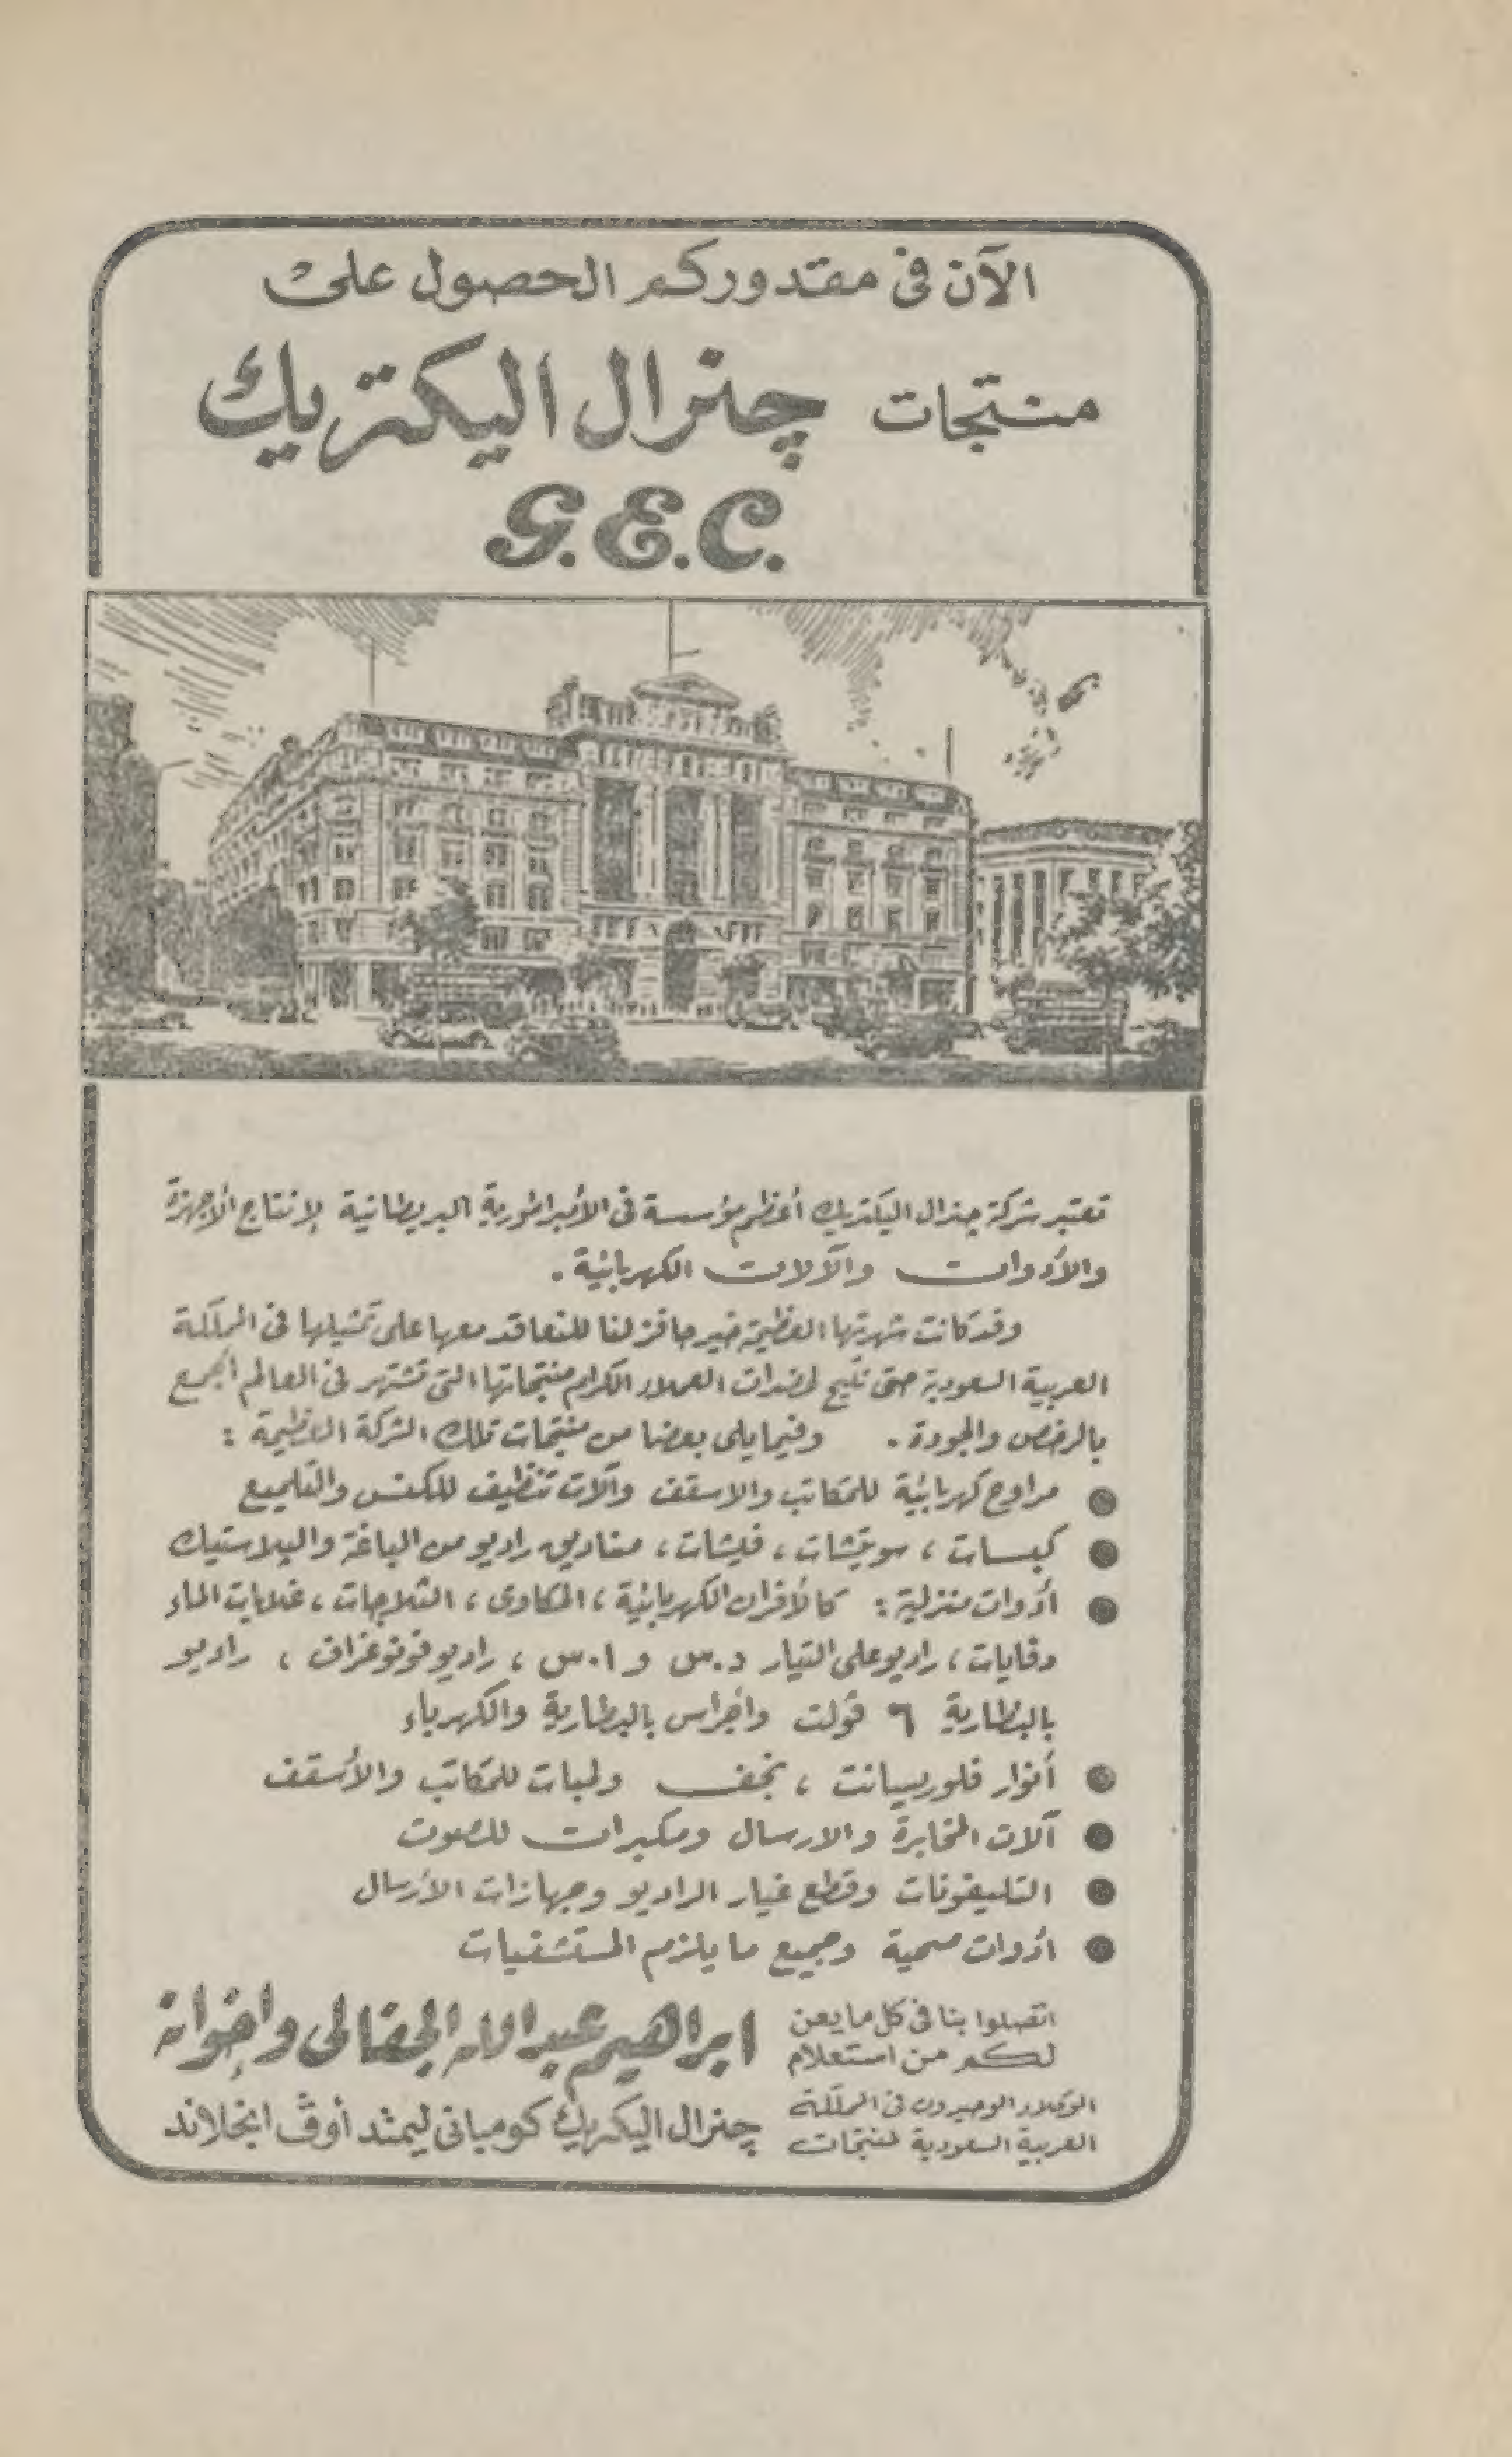 الآن فى مقدوركم الحصول على
منتجات چنرال اليكتريك
G.E.C.
تعتبر شركة چنرال اليكتريك أعظم مؤسسة فى الأمبراطورية البريطانية لإنتاج الأجهزة
والأدوات والآلات الكهربائية .
وقد كانت شهرتها العظيمة خير حافز لنا للتعاقد معها على تمثيلها فى المملكة
العربية السعودية حتى نتيح لحضرات العملاء الكرام منتجاتها التى تشتهر فى العالم أجمع
بالرخص والجودة . وفيما يلى بعضا من منتجات تلك الشركة العظيمة :
● مراوح كهربائية للمكاتب والاسقف وآلات تنظيف للكنس والتلميع
● كبسات ، سويتشات ، فيشات ، صناديق راديو من الباغة والبلاستيك
● أدوات منزلية : كالأفران الكهربائية ، المكاوى ، الثلاجات ، غلايات الماء
دفايات ، راديو على التيار د.س و ا.س ، راديو فونوغراف ، راديو
بالبطارية ٦ ڤولت وأجراس بالبطارية والكهرباء
● أنوار فلوريسانت ، نجف ولمبات للمكاتب والأسقف
● آلات المخابرة والارسال ومكبرات للصوت
● التليفونات وقطع غيار الراديو وجهازات الأرسال
● أدوات صحية وجميع ما يلزم المستشفيات
اتصلوا بنا فى كل ما يعن
لكم من استعلام
ابراهيم عبد الله الجفالى وإخوانه
الوكلاء الوحيدون فى المملكة
العربية السعودية لمنتجات
چنرال اليكتريك كومبانى ليمتد أوف انجلاند